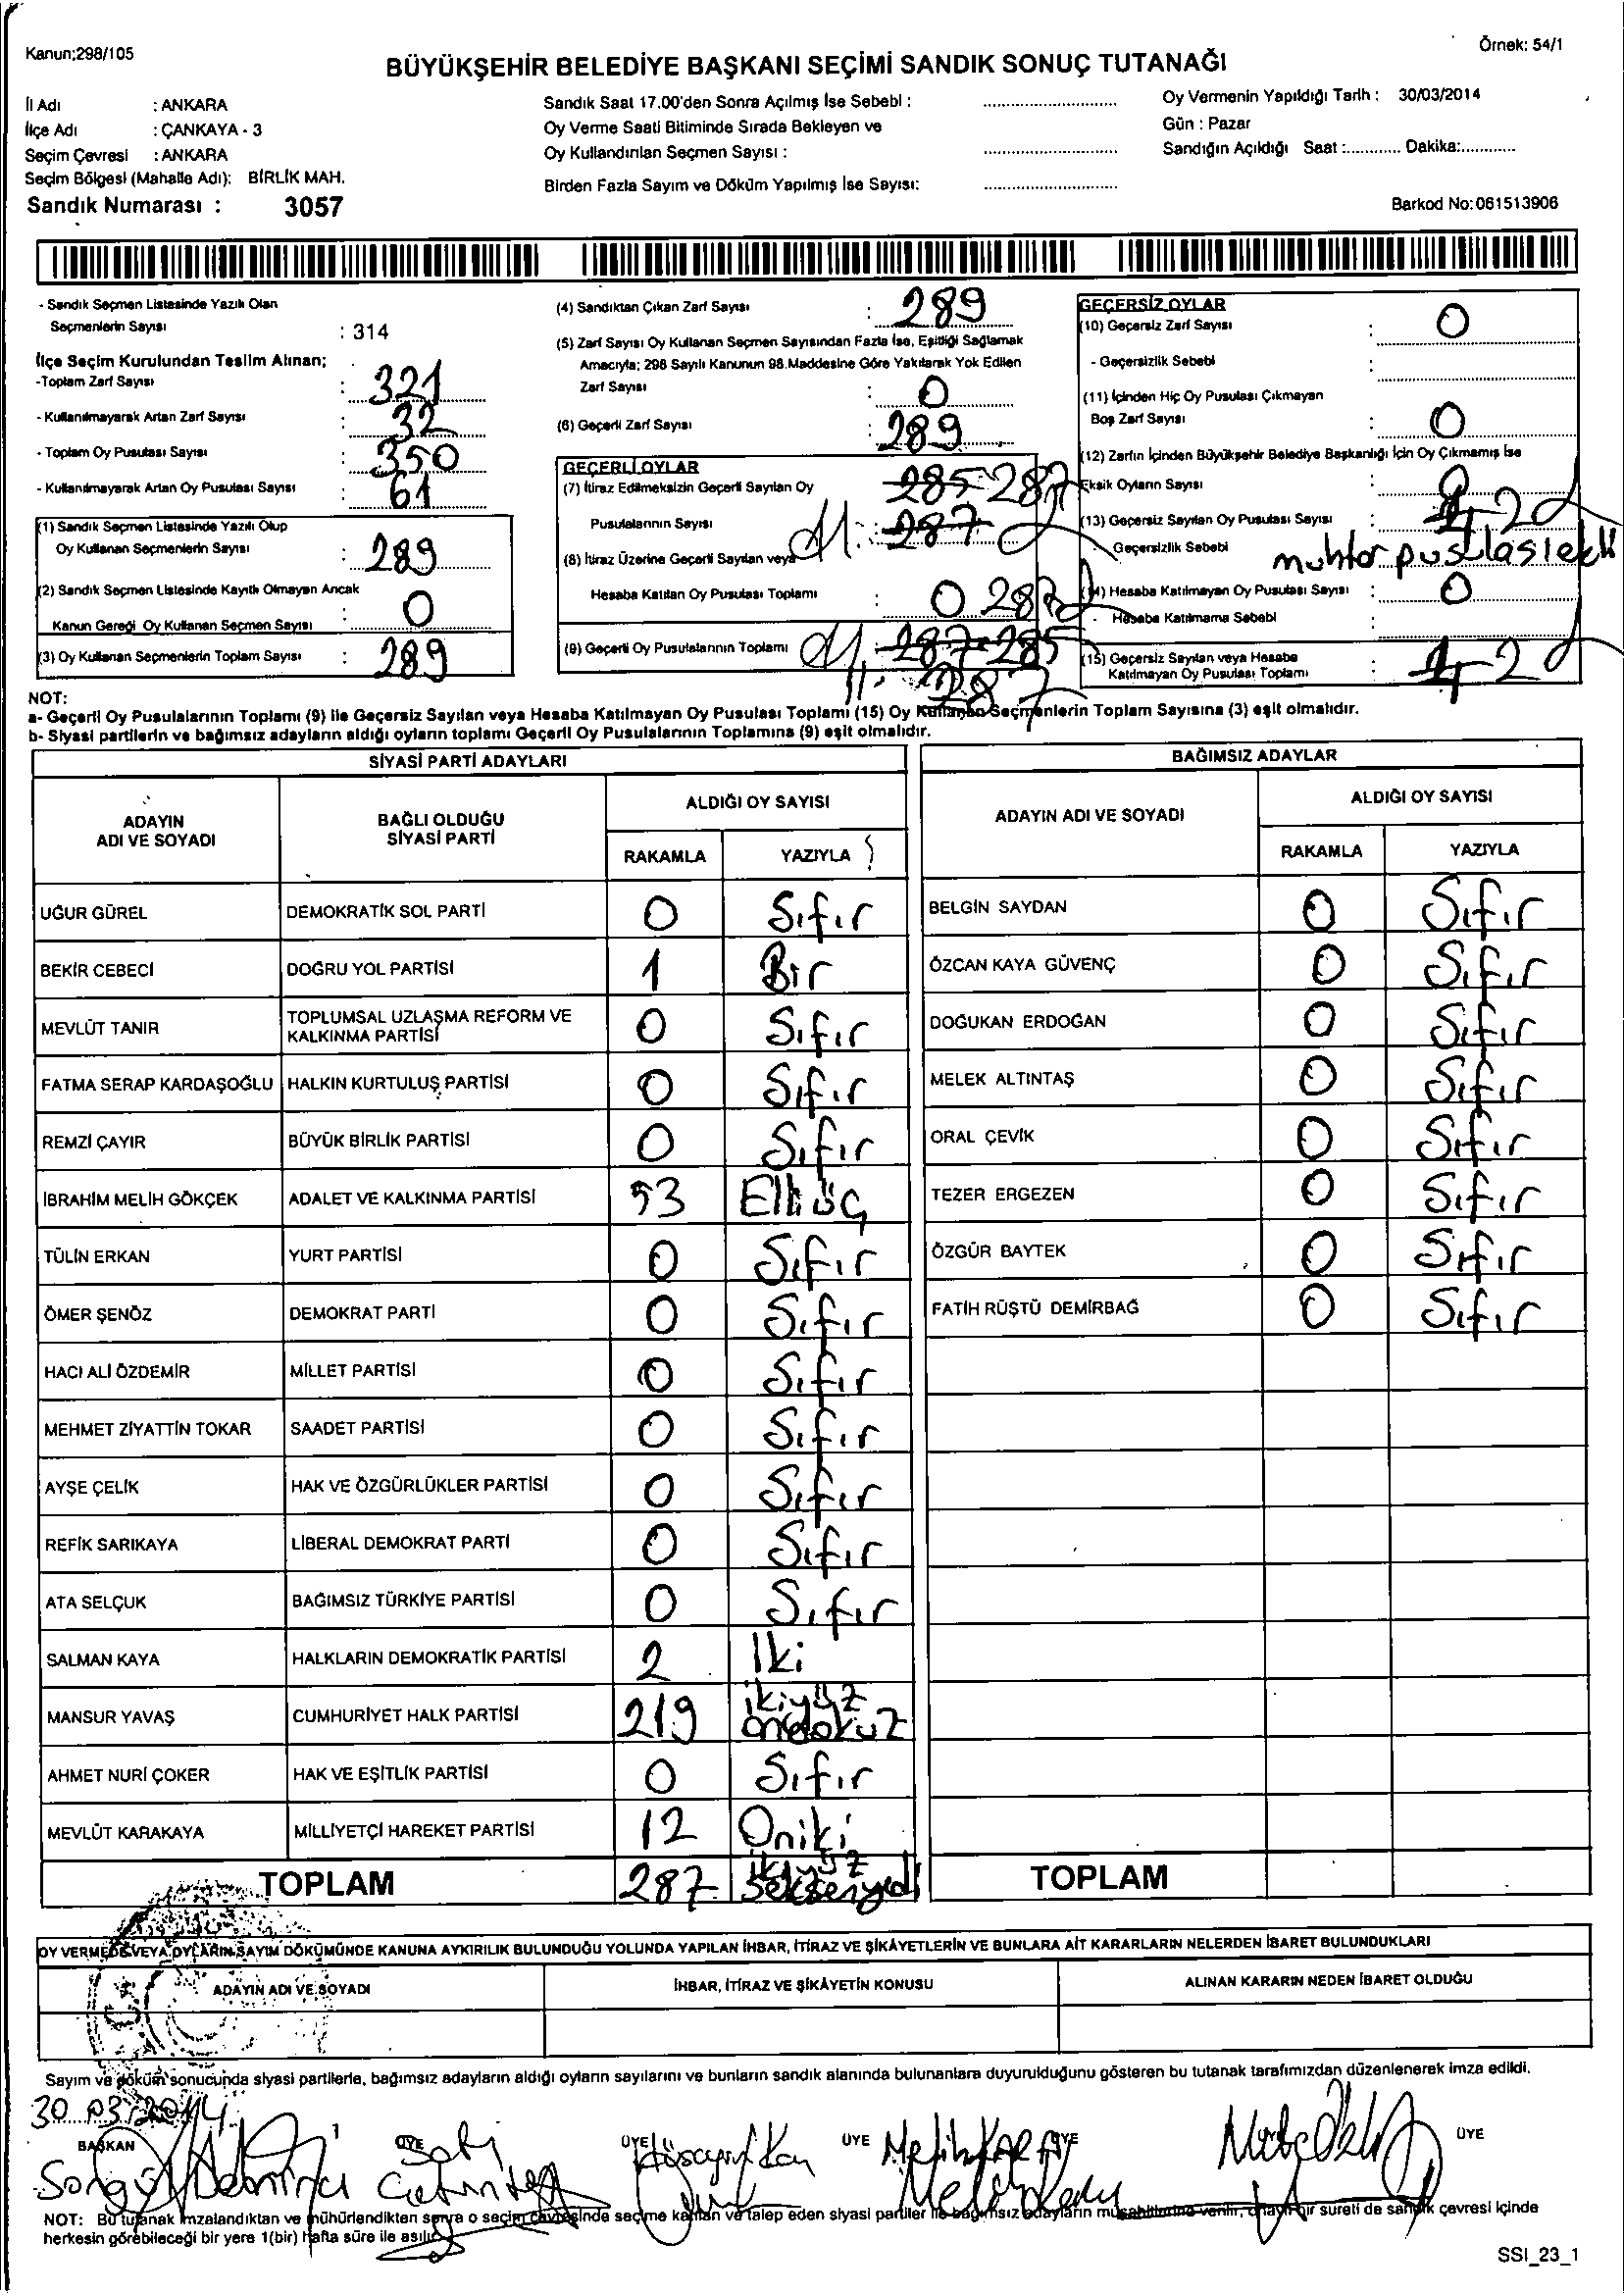 Kanun:298/105
Örnek: 54/1
BÜYÜKŞEHİR BELEDİYE BAŞKANI SEÇİMİ SANDIK SONUÇ TUTANAĞI
İl Adı : ANKARA
İlçe Adı : ÇANKAYA - 3
Seçim Çevresi : ANKARA
Seçim Bölgesi (Mahalle Adı): BİRLİK MAH.
Sandık Numarası : 3057
Sandık Saat 17.00'den Sonra Açılmış İse Sebebi :
Oy Verme Saati Bitiminde Sırada Bekleyen ve
Oy Kullandırılan Seçmen Sayısı :
Birden Fazla Sayım ve Döküm Yapılmış İse Sayısı:
Oy Vermenin Yapıldığı Tarih : 30/03/2014
Gün : Pazar
Sandığın Açıldığı Saat :............ Dakika:............
Barkod No:061513906
- Sandık Seçmen Listesinde Yazılı Olan
Seçmenlerin Sayısı : 314
İlçe Seçim Kurulundan Teslim Alınan;
-Toplam Zarf Sayısı : 321
- Kullanılmayarak Artan Zarf Sayısı : 32
- Toplam Oy Pusulası Sayısı : 350
- Kullanılmayarak Artan Oy Pusulası Sayısı : 61
(1) Sandık Seçmen Listesinde Yazılı Olup
Oy Kullanan Seçmenlerin Sayısı : 289
(2) Sandık Seçmen Listesinde Kayıtlı Olmayan Ancak
Kanun Gereği Oy Kullanan Seçmen Sayısı : 0
(3) Oy Kullanan Seçmenlerin Toplam Sayısı : 289
(4) Sandıktan Çıkan Zarf Sayısı : 289
(5) Zarf Sayısı Oy Kullanan Seçmen Sayısından Fazla İse, Eşitliği Sağlamak
Amacıyla; 298 Sayılı Kanunun 98.Maddesine Göre Yakılarak Yok Edilen
Zarf Sayısı : 0
(6) Geçerli Zarf Sayısı : 289
GEÇERLİ OYLAR
(7) İtiraz Edilmeksizin Geçerli Sayılan Oy 285 287
Pusulalarının Sayısı : 287
(8) İtiraz Üzerine Geçerli Sayılan veya
Hesaba Katılan Oy Pusulası Toplamı : 0 287
(9) Geçerli Oy Pusulalarının Toplamı 287 285
287
GEÇERSİZ OYLAR
(10) Geçersiz Zarf Sayısı : 0
- Geçersizlik Sebebi :
(11) İçinden Hiç Oy Pusulası Çıkmayan
Boş Zarf Sayısı : 0
(12) Zarfın İçinden Büyükşehir Belediye Başkanlığı İçin Oy Çıkmamış İse
Eksik Oyların Sayısı :
(13) Geçersiz Sayılan Oy Pusulası Sayısı : 2
- Geçersizlik Sebebi muhtar pusulası ekli
(14) Hesaba Katılmayan Oy Pusulası Sayısı : 0
- Hesaba Katılmama Sebebi :
(15) Geçersiz Sayılan veya Hesaba
Katılmayan Oy Pusulası Toplamı : 2
NOT:
a- Geçerli Oy Pusulalarının Toplamı (9) ile Geçersiz Sayılan veya Hesaba Katılmayan Oy Pusulası Toplamı (15) Oy Kullanan Seçmenlerin Toplam Sayısına (3) eşit olmalıdır.
b- Siyasi partilerin ve bağımsız adayların aldığı oyların toplamı Geçerli Oy Pusulalarının Toplamına (9) eşit olmalıdır.
SİYASİ PARTİ ADAYLARI
ADAYIN ADI VE SOYADI BAĞLI OLDUĞU SİYASİ PARTİ ALDIĞI OY SAYISI
RAKAMLA YAZIYLA
UĞUR GÜREL DEMOKRATİK SOL PARTİ 0 Sıfır
BEKİR CEBECİ DOĞRU YOL PARTİSİ 1 Bir
MEVLÜT TANIR TOPLUMSAL UZLAŞMA REFORM VE KALKINMA PARTİSİ 0 Sıfır
FATMA SERAP KARDAŞOĞLU HALKIN KURTULUŞ PARTİSİ 0 Sıfır
REMZİ ÇAYIR BÜYÜK BİRLİK PARTİSİ 0 Sıfır
İBRAHİM MELİH GÖKÇEK ADALET VE KALKINMA PARTİSİ 53 Elli üç
TÜLİN ERKAN YURT PARTİSİ 0 Sıfır
ÖMER ŞENÖZ DEMOKRAT PARTİ 0 Sıfır
HACI ALİ ÖZDEMİR MİLLET PARTİSİ 0 Sıfır
MEHMET ZİYATTİN TOKAR SAADET PARTİSİ 0 Sıfır
AYŞE ÇELİK HAK VE ÖZGÜRLÜKLER PARTİSİ 0 Sıfır
REFİK SARIKAYA LİBERAL DEMOKRAT PARTİ 0 Sıfır
ATA SELÇUK BAĞIMSIZ TÜRKİYE PARTİSİ 0 Sıfır
SALMAN KAYA HALKLARIN DEMOKRATİK PARTİSİ 2 İki
MANSUR YAVAŞ CUMHURİYET HALK PARTİSİ 219 ikiyüz ondokuz
AHMET NURİ ÇOKER HAK VE EŞİTLİK PARTİSİ 0 Sıfır
MEVLÜT KARAKAYA MİLLİYETÇİ HAREKET PARTİSİ 12 Oniki
TOPLAM 287 ikiyüz seksenyedi
BAĞIMSIZ ADAYLAR
ADAYIN ADI VE SOYADI ALDIĞI OY SAYISI
RAKAMLA YAZIYLA
BELGİN SAYDAN 0 Sıfır
ÖZCAN KAYA GÜVENÇ 0 Sıfır
DOĞUKAN ERDOĞAN 0 Sıfır
MELEK ALTINTAŞ 0 Sıfır
ORAL ÇEVİK 0 Sıfır
TEZER ERGEZEN 0 Sıfır
ÖZGÜR BAYTEK 0 Sıfır
FATİH RÜŞTÜ DEMİRBAĞ 0 Sıfır
TOPLAM
OY VERMEDE VEYA OYLARIN SAYIM DÖKÜMÜNDE KANUNA AYKIRILIK BULUNDUĞU YOLUNDA YAPILAN İHBAR, İTİRAZ VE ŞİKÂYETLERİN VE BUNLARA AİT KARARLARIN NELERDEN İBARET BULUNDUKLARI
ADAYIN ADI VE SOYADI İHBAR, İTİRAZ VE ŞİKÂYETİN KONUSU ALINAN KARARIN NEDEN İBARET OLDUĞU
Sayım ve döküm sonucunda siyasi partilerle, bağımsız adayların aldığı oyların sayılarını ve bunların sandık alanında bulunanlara duyurulduğunu gösteren bu tutanak tarafımızdan düzenlenerek imza edildi.
30.03.2014
BAŞKAN ÜYE ÜYE ÜYE ÜYE ÜYE
NOT: Bu tutanak imzalandıktan ve mühürlendikten sonra o seçim çevresinde seçime katılan ve talep eden siyasi partiler ile bağımsız adayların müşahitlerine verilir, onaylı bir sureti de sandık çevresi içinde
herkesin görebileceği bir yere 1(bir) hafta süre ile asılır.
SSI_23_1